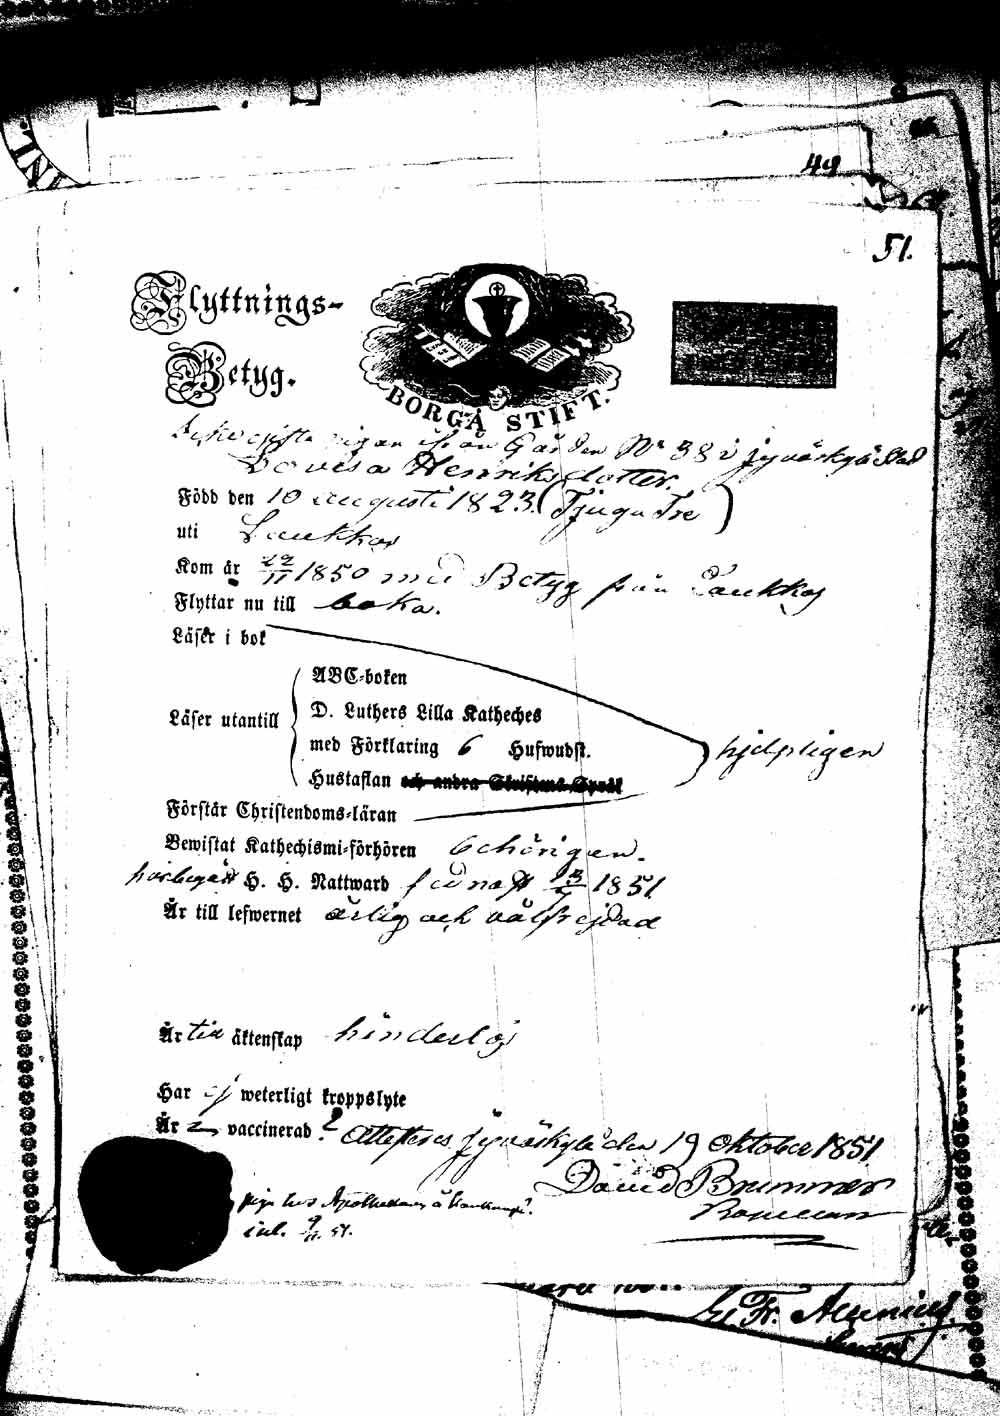 49
51.
Flyttnings-
Betyg.
BORGÅ STIFT.
pigan från Gården No 38 i Jyväskylä Stad
Lovisa Henriksdotter.
Född den 10 augusti 1823. (Tjugu Tre)
uti Laukkas
Kom år 22/11 1850 med Betyg från Laukkas
Flyttar nu till
Läser i bok
ABC-boken
Läser utantill D. Luthers Lilla Katheches
med Förklaring 6 Hufwudst.
Hustaflan och andra Skriftens Språk
hjelpligen
Förstår Christendoms-läran
Bewistat Kathechismi-förhören behörigen.
H. H. Nattward sednast 1851
Är till lefwernet ärlig och välfrejdad
Är till äktenskap hinderlös
Har ej weterligt kroppslyte
Är vaccinerad? Attesteras Jyväskylä den 19 Oktober 1851
David Brummer
inl. 9/11 51.